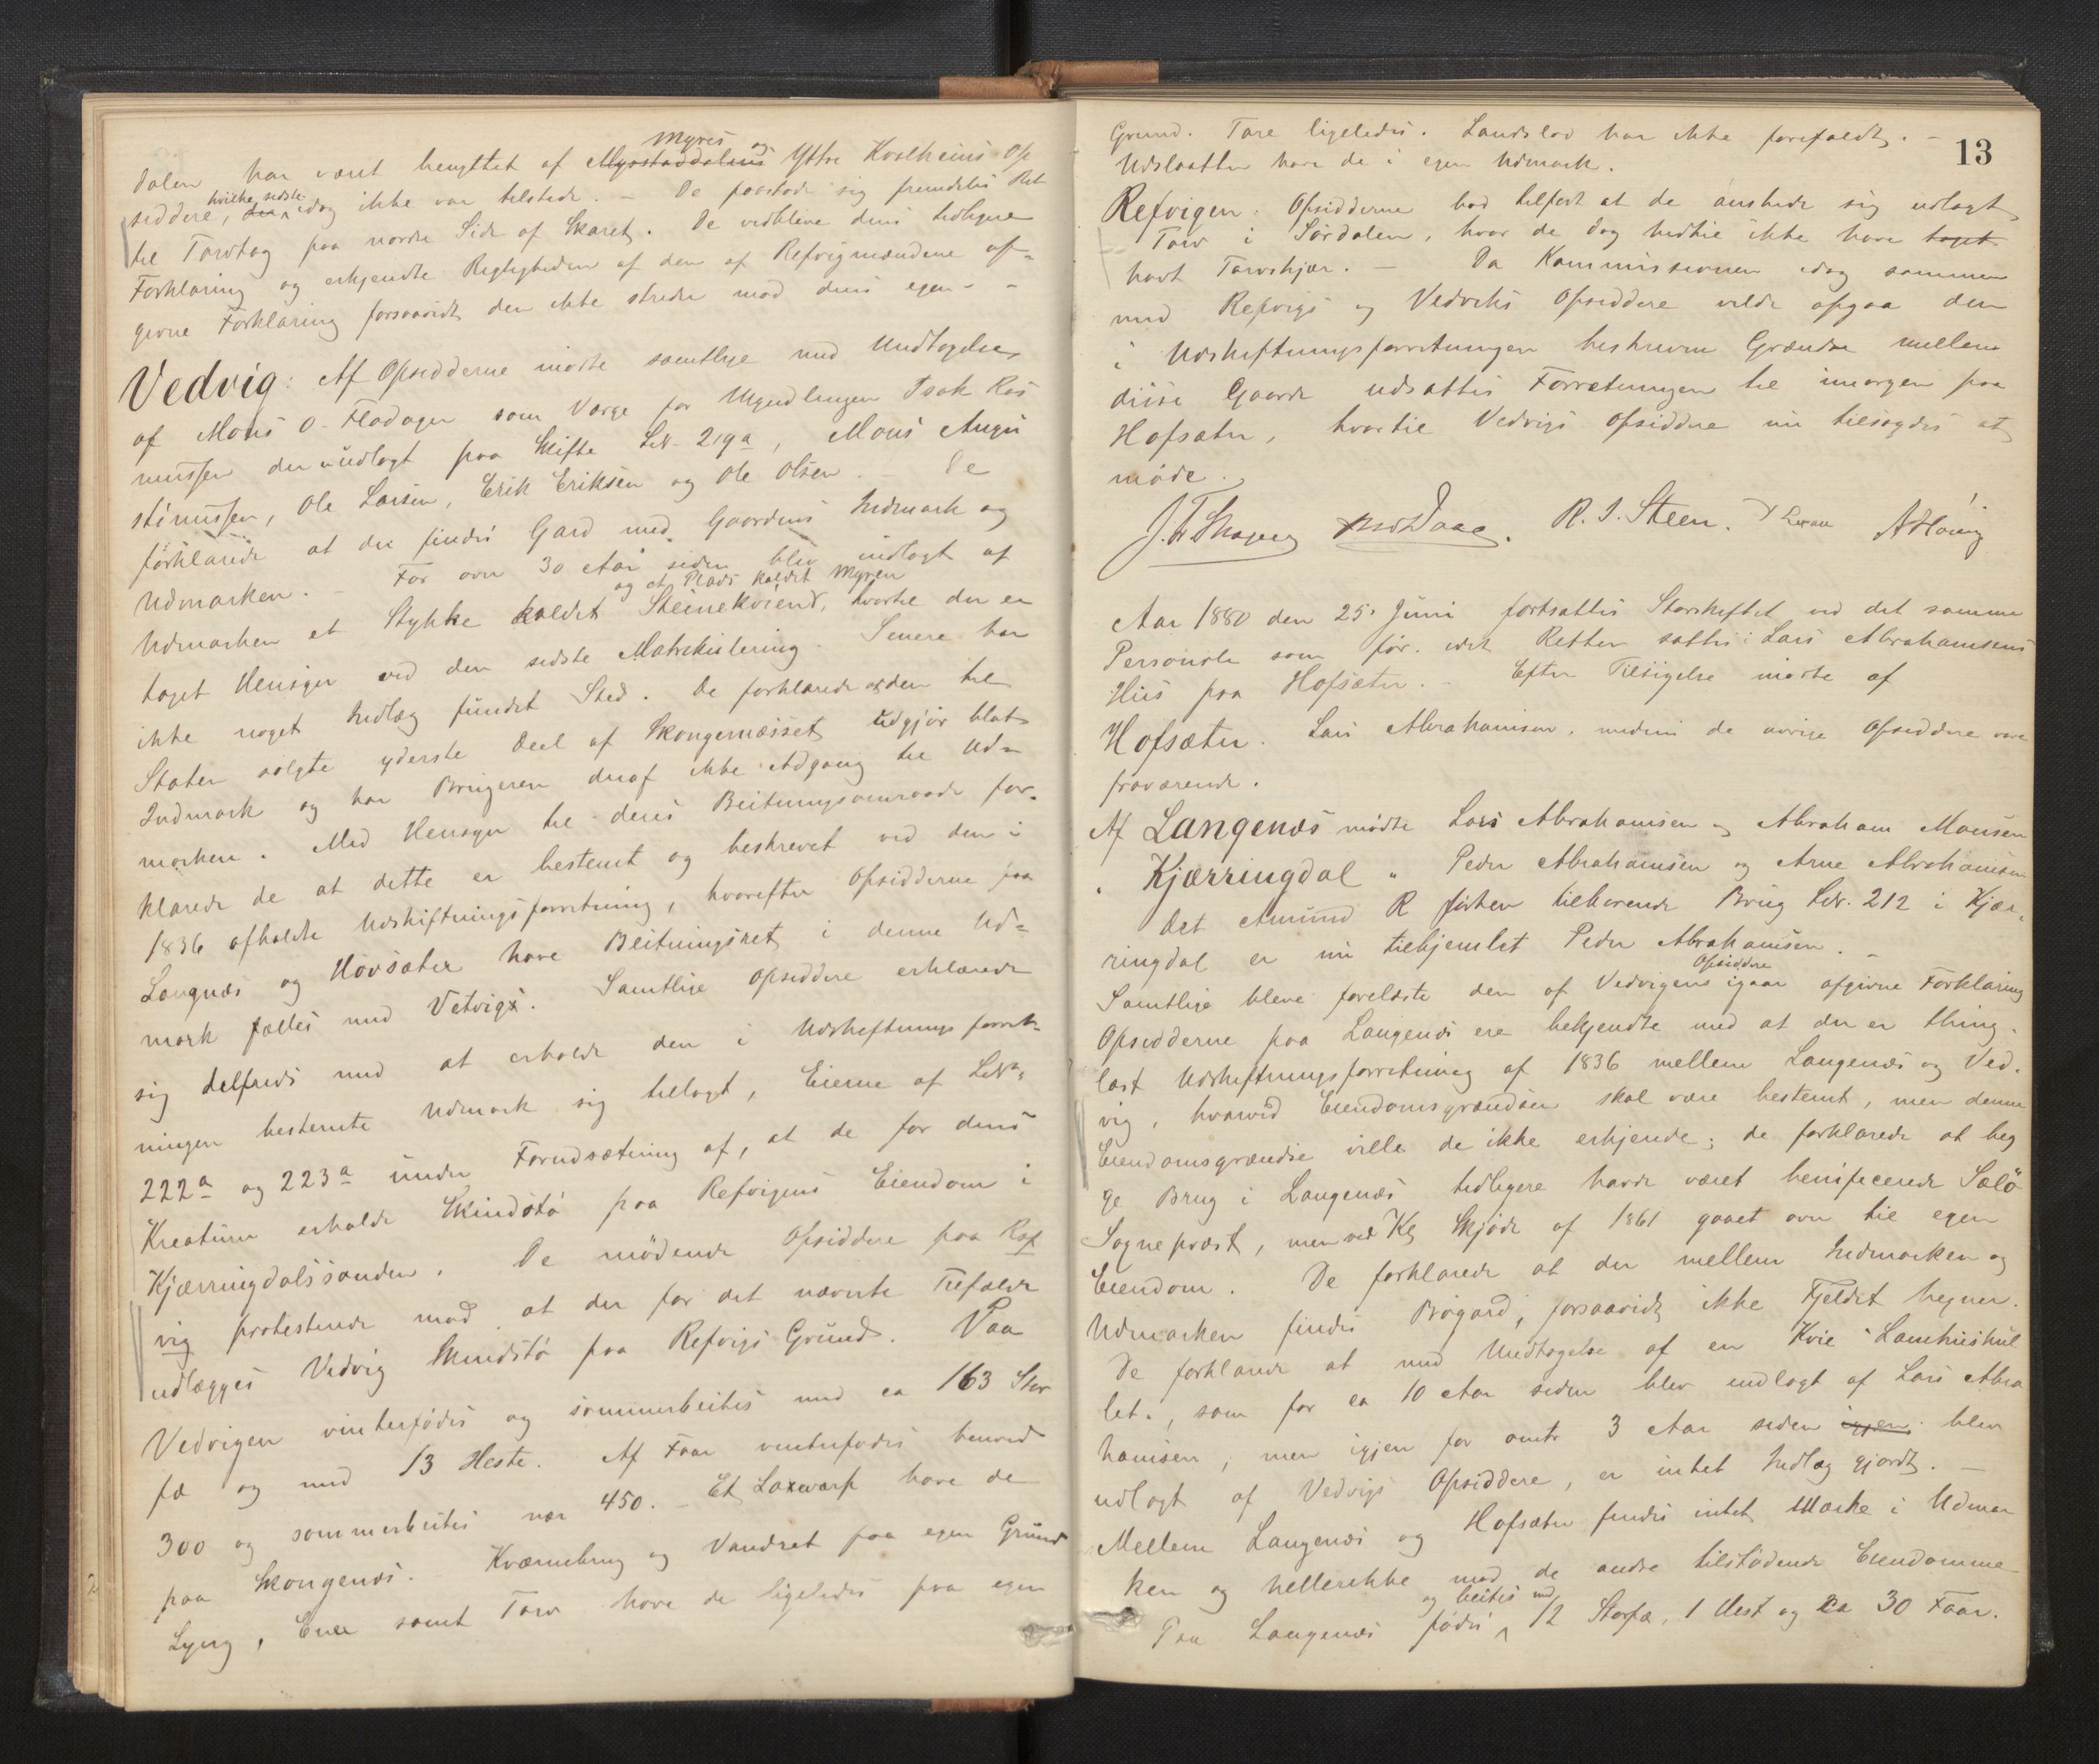 Myres og
Dalen har været benyttet af Myrstaddalens Yttre Hvalheims Op
hvilke sidste
siddere, der idag ikke var tilstede. – De paastod sig fremdeles Ret
til Torvtag paa nordre Side af Skaret. De vedbleve deres tidligere
Forklaring og erkjendte Rigtigheden af den af Refvigmændene af-
givne Forklaring forsaavidt den ikke strider mod deres egen. –
Vedvig: Af Opsidderne mødte samtlige med Undtagelse
af Mons O. Flodager som Værge for Myndlingen Isak Ras
mussen der er udlagt paa Skifte LN. 219a, Mons Augu
stinussen, Ole Larsen, Erik Eriksen og Ole Olsen. – De
forklarede at der findes Gard med Gaardens Indmark og
Udmarken. – For over 30 Aar siden blev indlagt af
og et Plads kaldet Myren
Udmarken et Stykke kaldet Steinekviend, hvortil der er
taget Hensyn ved den sidste Matrikulering. Senere har
ikke noget Indlæg fundet Sted. De forklarede at den til
Staten solgte yderste Deel af Skongenæsset udgjør blot
Indmark og har Brugeren deraf ikke Adgang til Ud-
marken. Med Hensyn til deres Beitningsomraade for-
klarede de at dette er bestemt og beskrevet ved den i
1836 afholdte Udskiftningsforretning, hvorefter Opsidderne paa
Langnæs og Hovsæter have Beitningsret i denne Ud-
mark fælles med Vetvigs. Samtlige Opsiddere erklærede
sig tilfreds med at erholde den i Udskiftningsforret-
ningen bestemte Udmark sig tillagt, Eierne af LNr.
222a og 223a under Forudsætning af, at de for deres
Kreaturer erholde Skindstö paa Refvigens Eiendom i
Kjærringdalssanden. De mødende Opsiddere paa Ref
vig protesterede mod at der for det nævnte Tilfælde
udlægges Vedvig Skindstö paa Refvigs Grund. Paa
Vedvigen vinterfødes og sommerbeites med ca 163 Stor
fæ og med 13 Heste. Af Faar vinterfødes henved
300 og sommerbeites nær 450. – Et Laxevarp have de
paa Skongenæs. Kværnebrug og Vandret paa egen Grund
Lyng, Ener samt Torv have de ligeledes paa egen
13
Grund. Tare ligeledes. Landslod har ikke forefaldt. –
Udslaatter have de i egen Udmark.
Refvigen: Opsidderne bad tilført at de ønskede sig udlagt
Torv i Sørdalen, hvor de dog hidtil ikke have taget
havt Torvskjær. – Da Kommissionen idag sammen
med Refvigs og Vedviks Opsiddere vilde opgaa den
i Udskiftningsforretningen beskrevne Grændse mellem
disse Gaarde udsattes Forretningen til imorgen paa
Hofsæter, hvortil Vedvigs Opsiddere nu tilsagdes at
møde.
R. J. Steen.
Aar 1880 den 25. Juni fortsattes Storskiftet ved det samme
Personale som før. idet Retten sattes i Lars Abrahamsens
Huus paa Hofsæter. – Efter Tilsigelse mødte af
Hofsæter. Lars Abrahamsen, medens de øvrige Opsiddere vare
fraværende.
Af Langenæs mødte Lars Abrahamsen og Abraham Monsen
„ Kjærringdal „ Peder Abrahamsen og Arne Abrahamsen
Det Amund R Førten tilhørende Brug LNr. 212 i Kjær-
ringdal er nu tilhjemlet Peder Abrahamsen. –
Opsiddere
Samtlige bleve forelæste den af Vedvigens igaar afgivne Forklaring
Opsidderne paa Langenæs ere bekjendte med at der er thing-
læst Udskiftningsforretning af 1836 mellem Langenæs og Ved-
vig, hvorved Eiendomsgrændsen skal være bestemt, men denne
Eiendomsgrændse ville de ikke erkjende; de forklarede at beg
ge Brug i Langenæs tidligere havde været benificerede Sælø
Sognepræst, men ved Kg Skjøde af 1861 gaaet over til egen
Eiendom. De forklarede at der mellem Indmarken og
Udmarken findes Bøgard, forsaavidt ikke Fjeldet hegner.
De forklarede at med Undtagelse af en Kvie "Lamhushul
let", som for ca 10 Aar siden blev indlagt af Lars Abra
hamsen, men igjen for omtr 3 Aar siden igjen blev
udlagt af Vedvigs Opsiddere, er intet Indlæg gjordt. –
Mellem Langenæs og Hofsæter findes intet Mærke i Udmar
ken og hellerikke mod de andre tilstødende Eiendomme
og beites med
Paa Langenæs fødes 12 Storfæ, 1 Hest og ca 30 Faar.